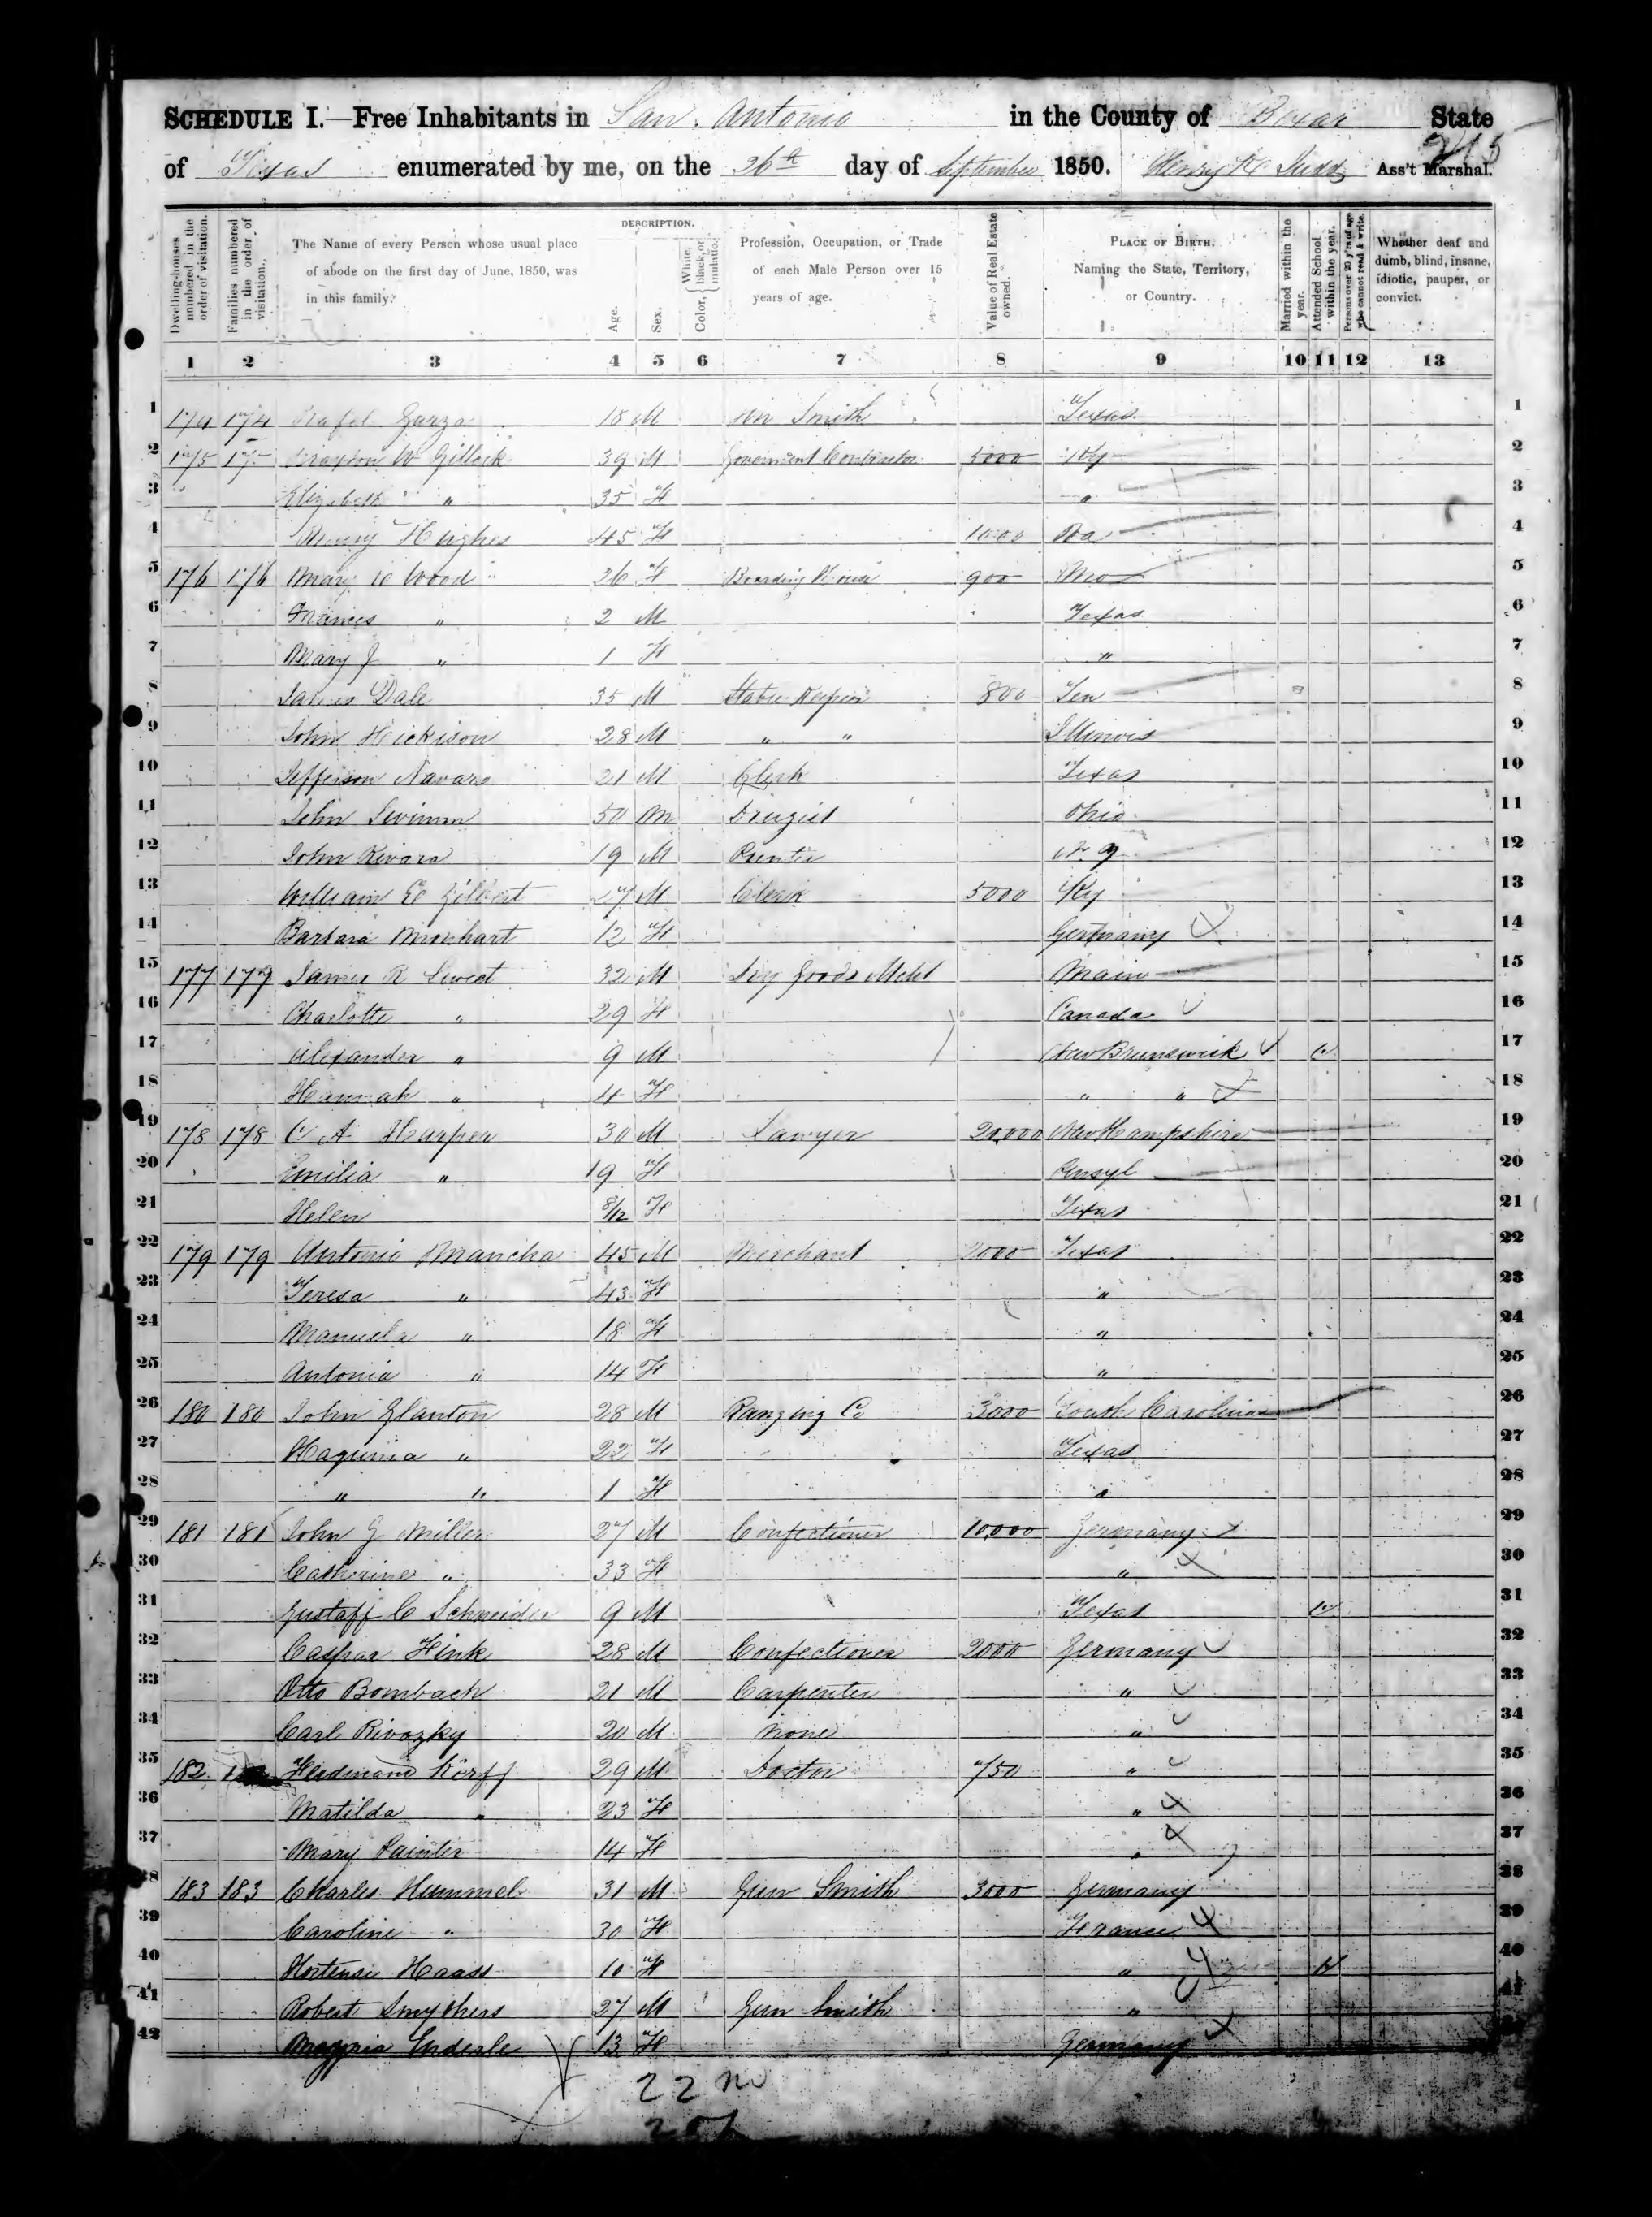 SCHEDULE I.—Free Inhabitants in San. Antonio in the County of Bexar State
245
of Texas enumerated by me, on the 26th day of September 1850. Henry K Judd Ass't Marshal.
Dwelling-houses numbered in the order of visitation. Families numbered in the order of visitation. The Name of every Person whose usual place of abode on the first day of June, 1850, was in this family. DESCRIPTION. Age. Sex. Color, White, black, or mulatto. Profession, Occupation, or Trade of each Male Person over 15 years of age. Value of Real Estate owned. PLACE OF BIRTH. Naming the State, Territory, or Country. Married within the year. Attended School within the year. Persons over 20 y'rs of age who cannot read & write. Whether deaf and dumb, blind, insane, idiotic, pauper, or convict.
1 2 3 4 5 6 7 8 9 10 11 12 13
1 174 174 Rafel Garza 18 M Smith Texas 1
2 175 17 W Gillock 39 M Government Contractor 5000 Ky 2
3 Elizabeth " 35 F " 3
4 Hughes 45 F 1000 4
5 176 176 Mary Wood 26 F Boarding House 900 Mo 5
6 Frances " 2 M Texas 6
7 Mary J " 1 F " 7
8 James Dale 35 M Stable Keeper 800 Ten 8
9 John Hickison 28 M " " Illinois 9
10 Jefferson Navaro 21 M Clerk Texas 10
11 John Swimm 50 M Drugist Ohio 11
12 John Rivara 19 M Printer N.Y 12
13 William E Gilbert 27 M Clerk 5000 Ky 13
14 Barbara 12 F Germany 14
15 177 177 James R Sweet 32 M Dry Goods Mcht Main 15
16 Charlotte " 29 F Canada 16
17 Alexander " 9 M New Brunswick 17
18 Hannah " 4 F " " 18
19 178 178 C A Harper 30 M Lawyer 20,000 New Hampshire 19
20 Emilia " 19 F Pensyl 20
21 Helen 8/12 F Texas 21
22 179 179 Antonio Mancha 45 M Merchant 2000 Texas 22
23 Teresa " 43 F " 23
24 Manuela " 18 F " 24
25 Antonia " 14 F " 25
26 180 180 John Glanton 28 M Ranging Co 3000 South Carolina 26
27 Haquinia " 22 F Texas 27
28 " " 1 F " 28
29 181 181 John G Miller 27 M Confectioner 10,000 Germany 29
30 Catherine " 33 F " 30
31 Gustaff C Schneider 9 M Texas 31
32 Caspar Fink 28 M Confectioner 2000 Germany 32
33 Otto Bombach 21 M Carpenter " 33
34 Carl Rivozky 20 M none " 34
35 182 Ferdinand Körff 29 M Doctor 750 " 35
36 Matilda " 23 F " 36
37 Mary Painter 14 F " 37
38 183 183 Charles Hummel 31 M Gun Smith 3000 Germany 38
39 Caroline " 30 F France 39
40 Hortense Haass 10 F " 40
41 Robert Smythers 27 M Gun Smith " 41
42 Enderle 13 F Germany
22 m
20 f